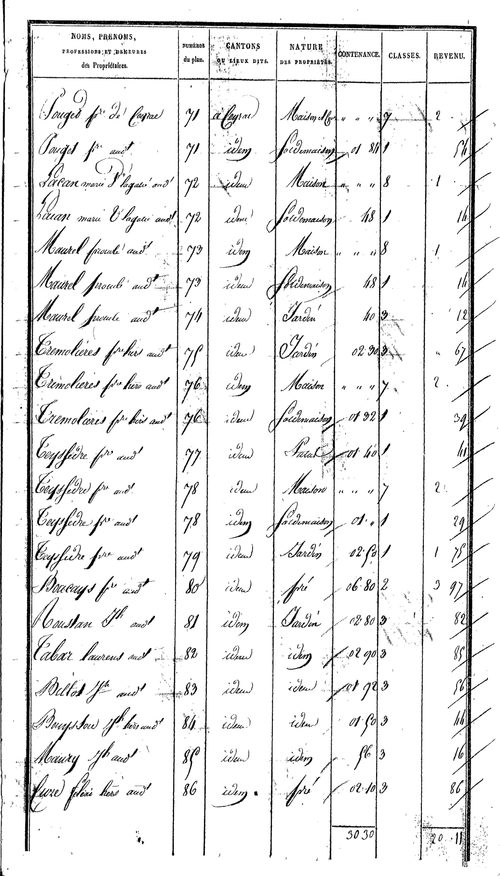 NOMS, PRÉNOMS, PROFESSIONS ET DEMEURES des Propriétaires. NUMÉROS du plan. CANTONS OU LIEUX DITS. NATURE DES PROPRIÉTÉS. CONTENANCE. CLASSES. REVENU.
Pouget fre de Ceyrac 71 à Ceyrac Maison et " " " 7 2
Pouget fre audt 71 idem Sol de maison 01 84 1 54
Lacan marie audt 72 idem Maison " " " 8 1
Lacan marie audt 72 idem Sol de maison 48 1 14
Maurel audt 73 idem Maison " " " 8 1
Maurel audt 73 idem Sol de maison 48 1 14
Maurel audt 74 idem Jardin 40 3 12
Tremolières fre hers audt 75 idem Jardin 02 30 3 " 67
Tremolières fre hers audt 76 idem Maison " " " 7 2
Tremolières fre hers audt 76 idem Sol de maison 01 32 1 39
Teyssèdre fre audt 77 idem 01 40 1 41
Teyssèdre fre audt 78 idem Maison " " " 7 2
Teyssèdre fre audt 78 idem Sol de maison 01 " 1 29
Teyssèdre fre audt 79 idem Jardin 02 50 1 1 75
fre audt 80 idem pré 06 80 2 3 97
Roustan Jh audt 81 idem Jardin 02 80 3 82
Tabar laurens audt 82 idem idem 02 90 3 85
Jh audt 83 idem idem 01 92 3 56
Jh hers audt 84 idem idem 01 50 3 44
Maury Jh audt 85 idem idem 56 3 16
hers audt 86 idem pré 02 10 3 86
30 30 20 11